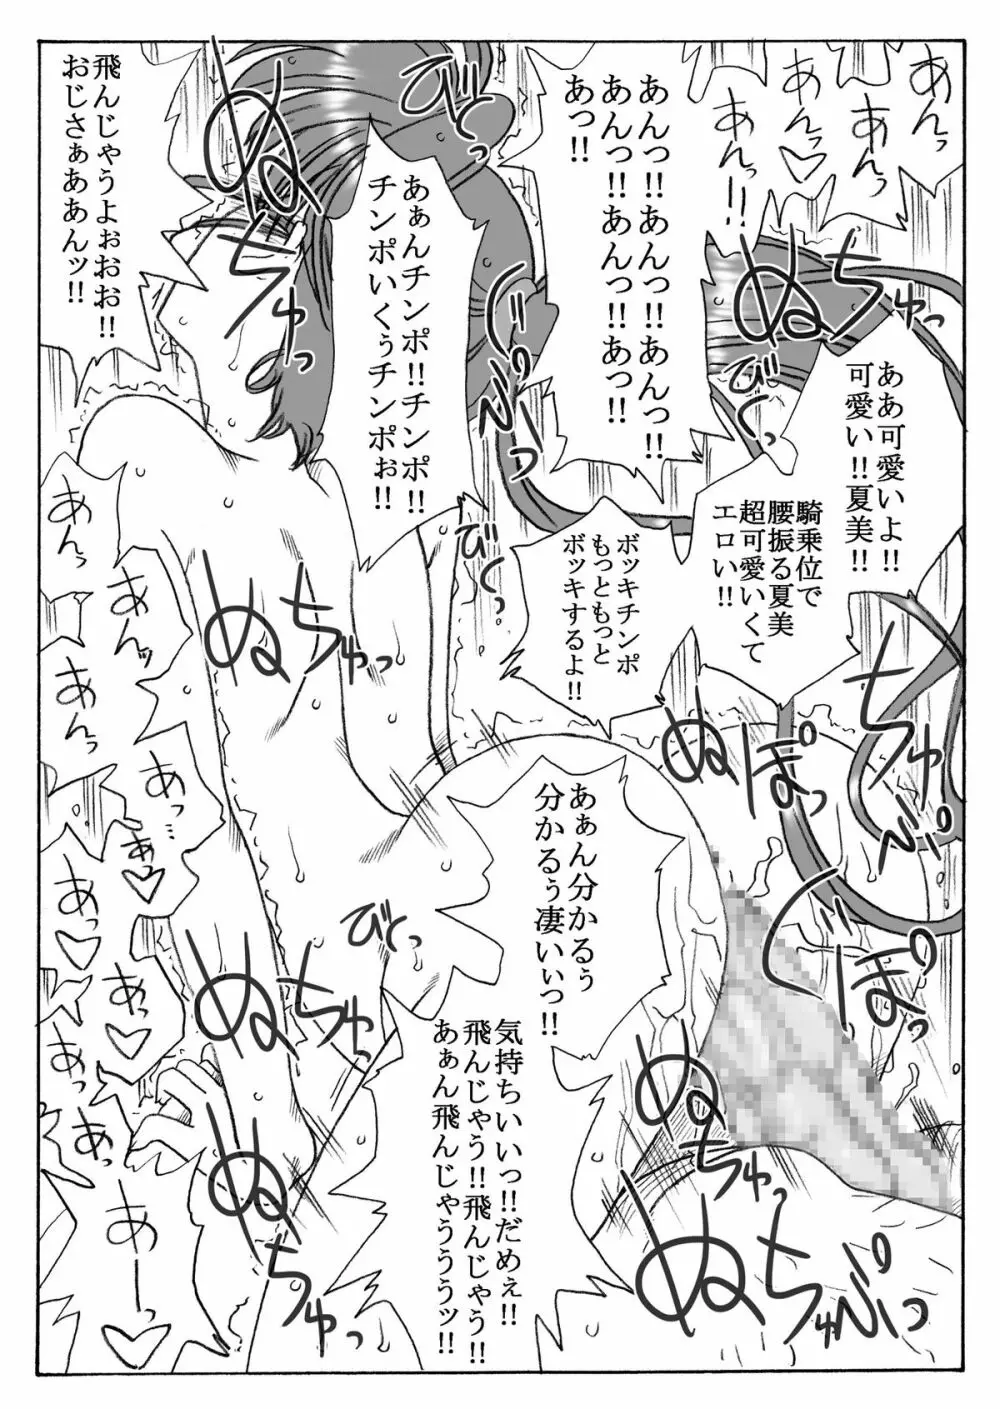 あんっ
あんっ
あんっ♡
あんっ!!
ああ可愛いよ!!
可愛い!!夏美!!
騎乗位で
腰振る夏美
超可愛いくて
エロい!!
ボッキチンポ
もっともっと
ボッキするよ!!
あんっ!!あんっ!!あんっ!!
あんっ!!あんっ!!あっ!!
あっ!!
あぁんチンポ!!チンポ!!
チンポいくぅチンポぉ!!
飛んじゃうよぉぉぉ!!
おじさぁああんッ!!
あぁん分かるぅ
分かるぅ凄いぃっ!!
気持ちいいっ!!だめぇ!!
飛んじゃう!!飛んじゃう!!
あぁん飛んじゃうううッ!!
あんっ
あんッ
あんっ
あっ…
あ♡
あっ♡
あっ♡
あっあっ
あーっ♡
ぬちゅっ
びくっ
ぬちゅ
びくっ
ぷっ
ぬちゅっ
びくっ
ちゅぷ
ぬぽっ
じゅぽっ
びくっ
ぬちゅっ
ぬちゅっ
ぬちゅっ
ぬちゅぷっ